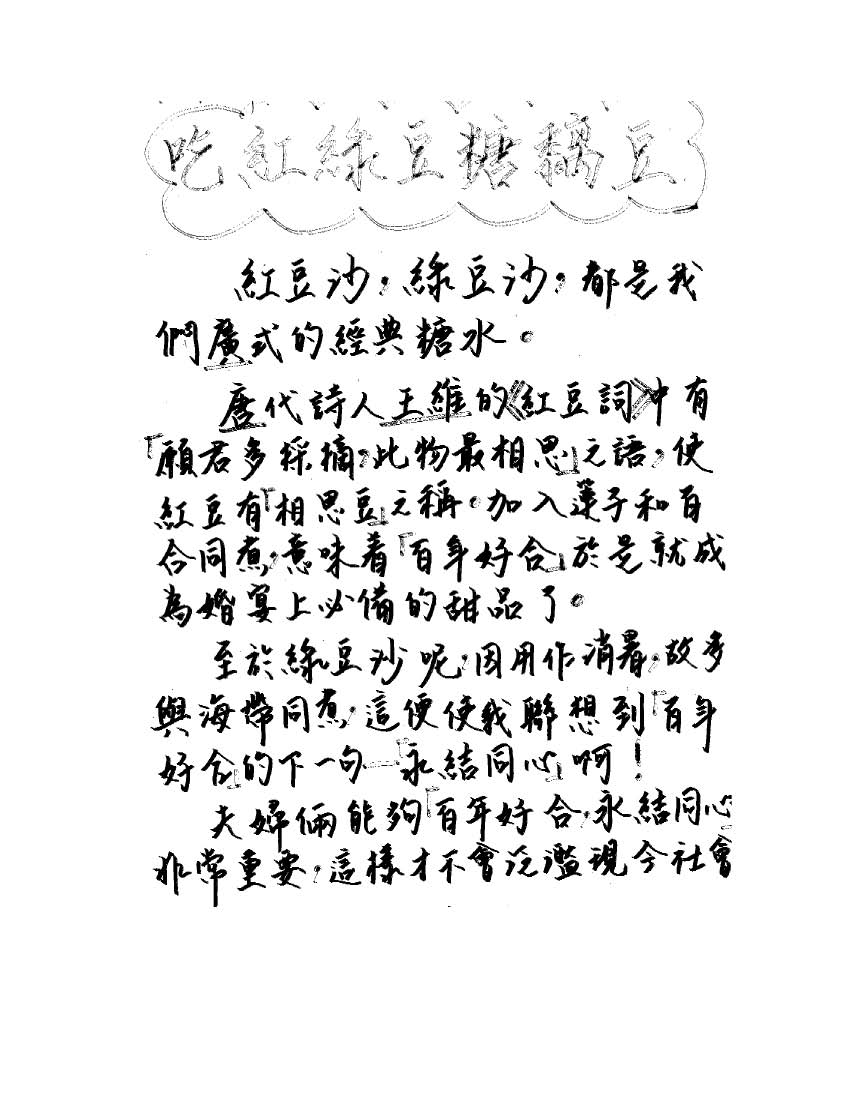 吃紅綠豆糖藕豆
紅豆沙，綠豆沙，都是我
們廣式的經典糖水。
唐代詩人王維的《紅豆詞》中有
「願君多採摘，此物最相思」之語，使
紅豆有「相思豆」之稱。加入蓮子和百
合同煮，意味着「百年好合」於是就成
為婚宴上必備的甜品了。
至於綠豆沙呢，因用作消暑，故多
與海帶同煮，這便使我聯想到「百年
好合」的下一句—「永結同心」啊！
夫婦倆能夠「百年好合，永結同心」
非常重要，這樣才不會泛濫現今社會